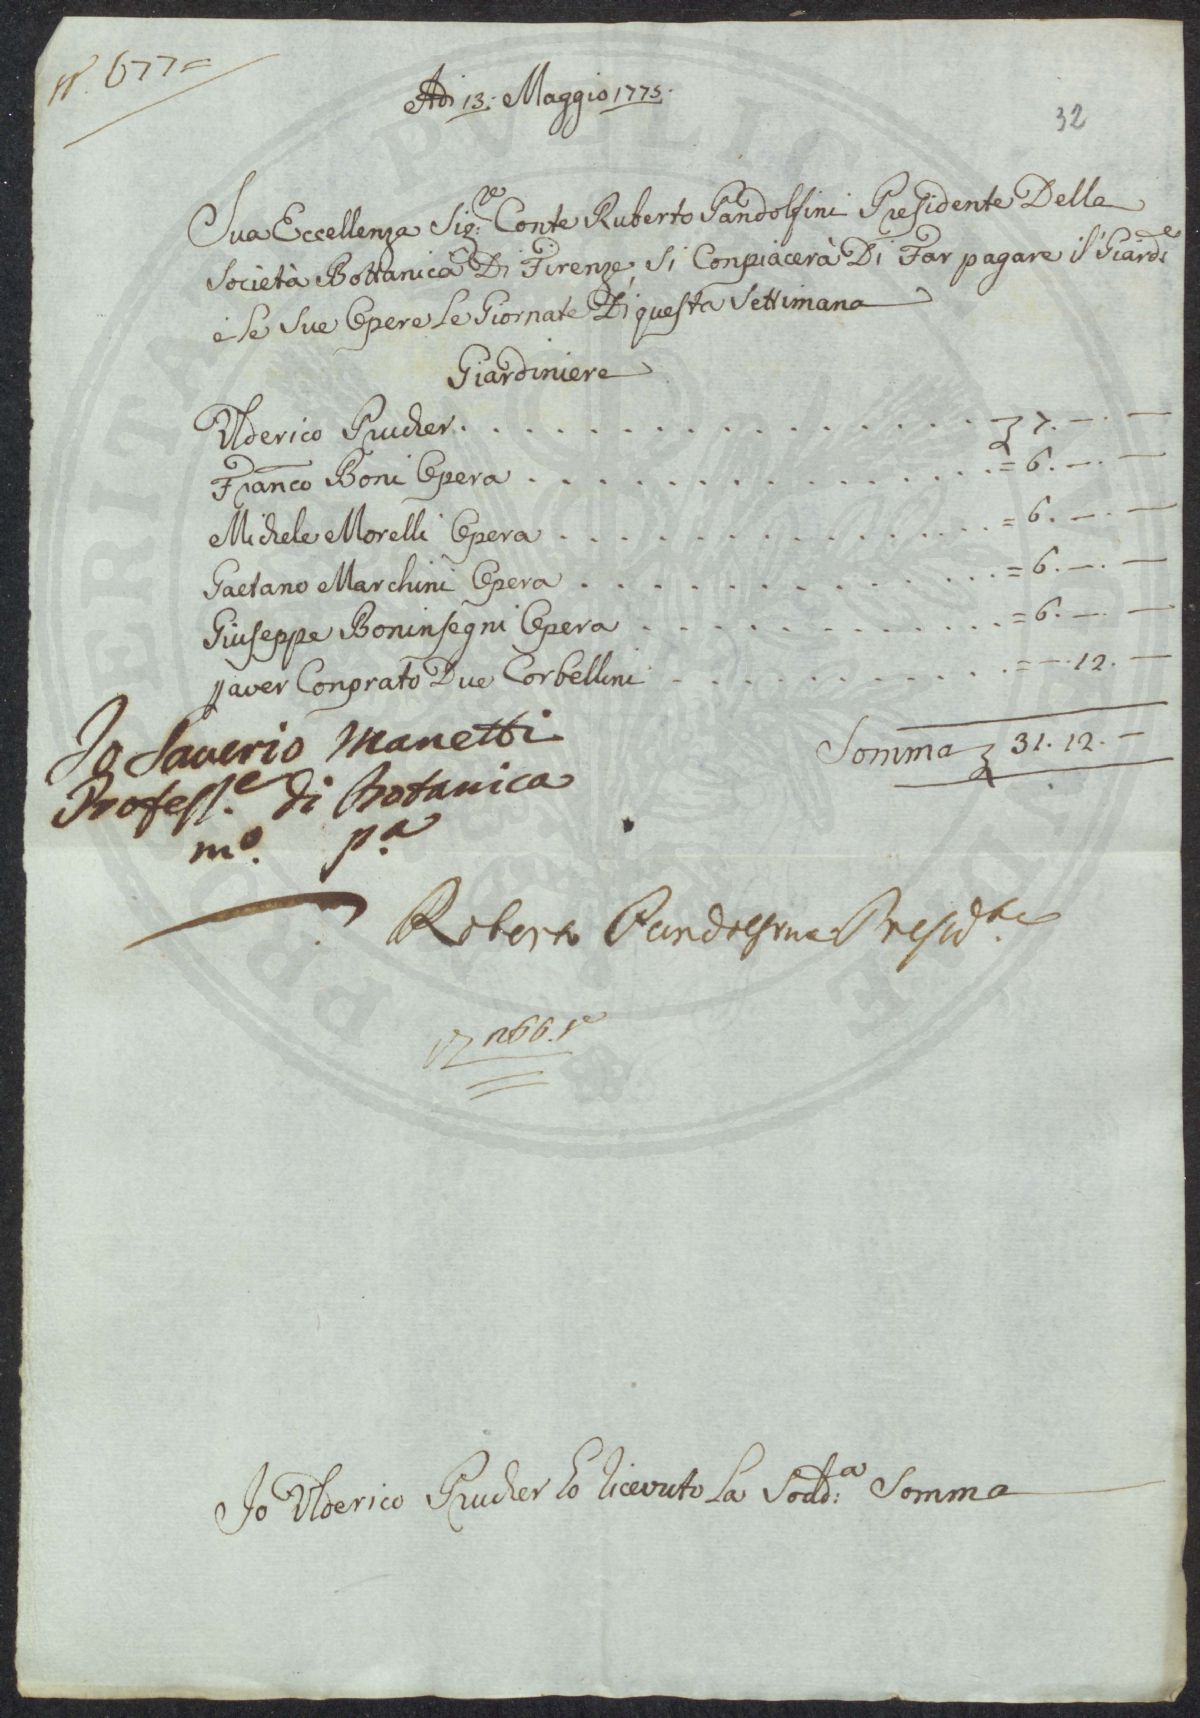 N. 677=
Adi 13: Maggio 1775.
32
Sua Eccellenza Sig:re Conte Ruberto Pandolfini Presidente Della
Società Bottanica Di Firenze, Si Conpiacerà Di Far pagare il Giard:e
e le Sue Opere le Giornate Di questa Settimana
Giardiniere
Ulderico Prucher . . . . . . . . . . . . . . . 7. —. —
Franco Boni Opera . . . . . . . . . . . . . . = 6. —. —
Michele Morelli Opera . . . . . . . . . . . . . = 6. —. —
Gaetano Marchini Opera . . . . . . . . . . . . = 6. —. —
Giuseppe Boninsegni Opera . . . . . . . . . . . = 6. —. —
aver Conprato Due Corbellini . . . . . . . . . . . = —. 12. —
Somma 31. 12. —
Io Saverio Manetti
Profess.e di Botanica
mo. p.a
Roberto Pandolfini Presid.te
Io Ulderico Prucher ho ricevuto La Sodd:a Somma
PROPERITATI PVBLICAE